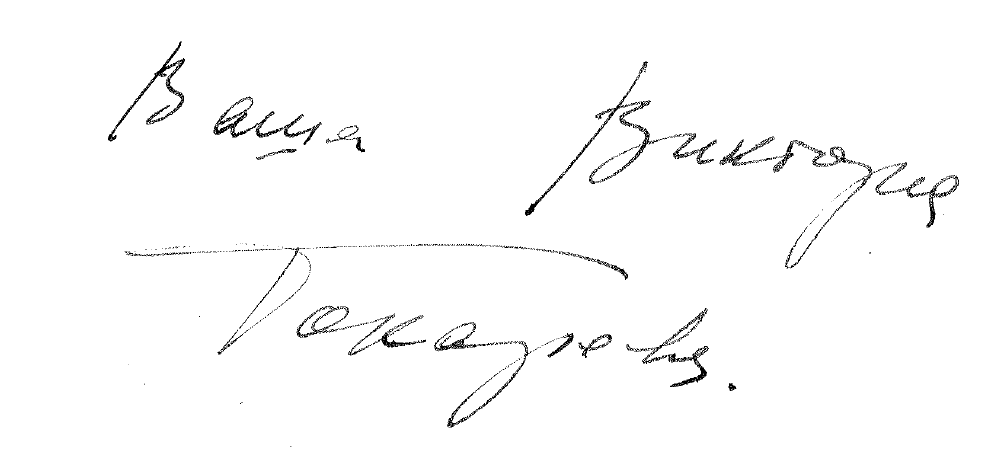 Ваша Виктория
Токарева.